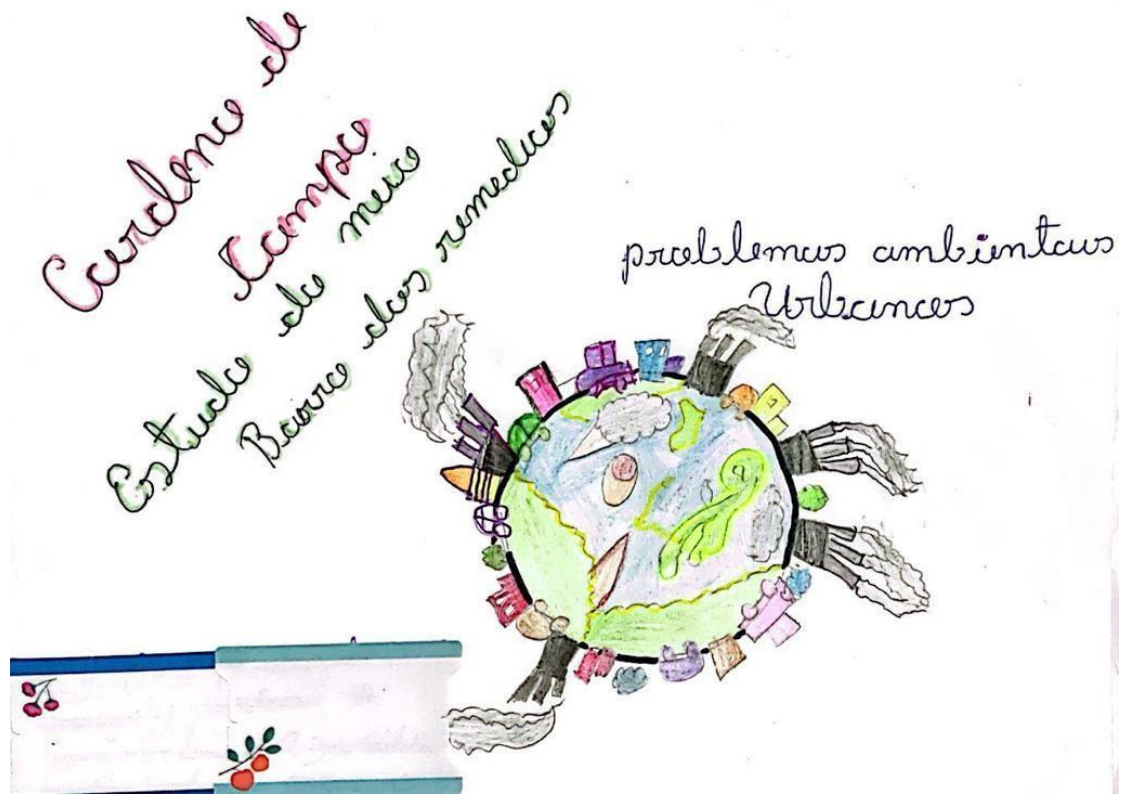 Caderno de
Campo
Estudo do meio
Barra dos remedios
problemas ambientais
Urbanos